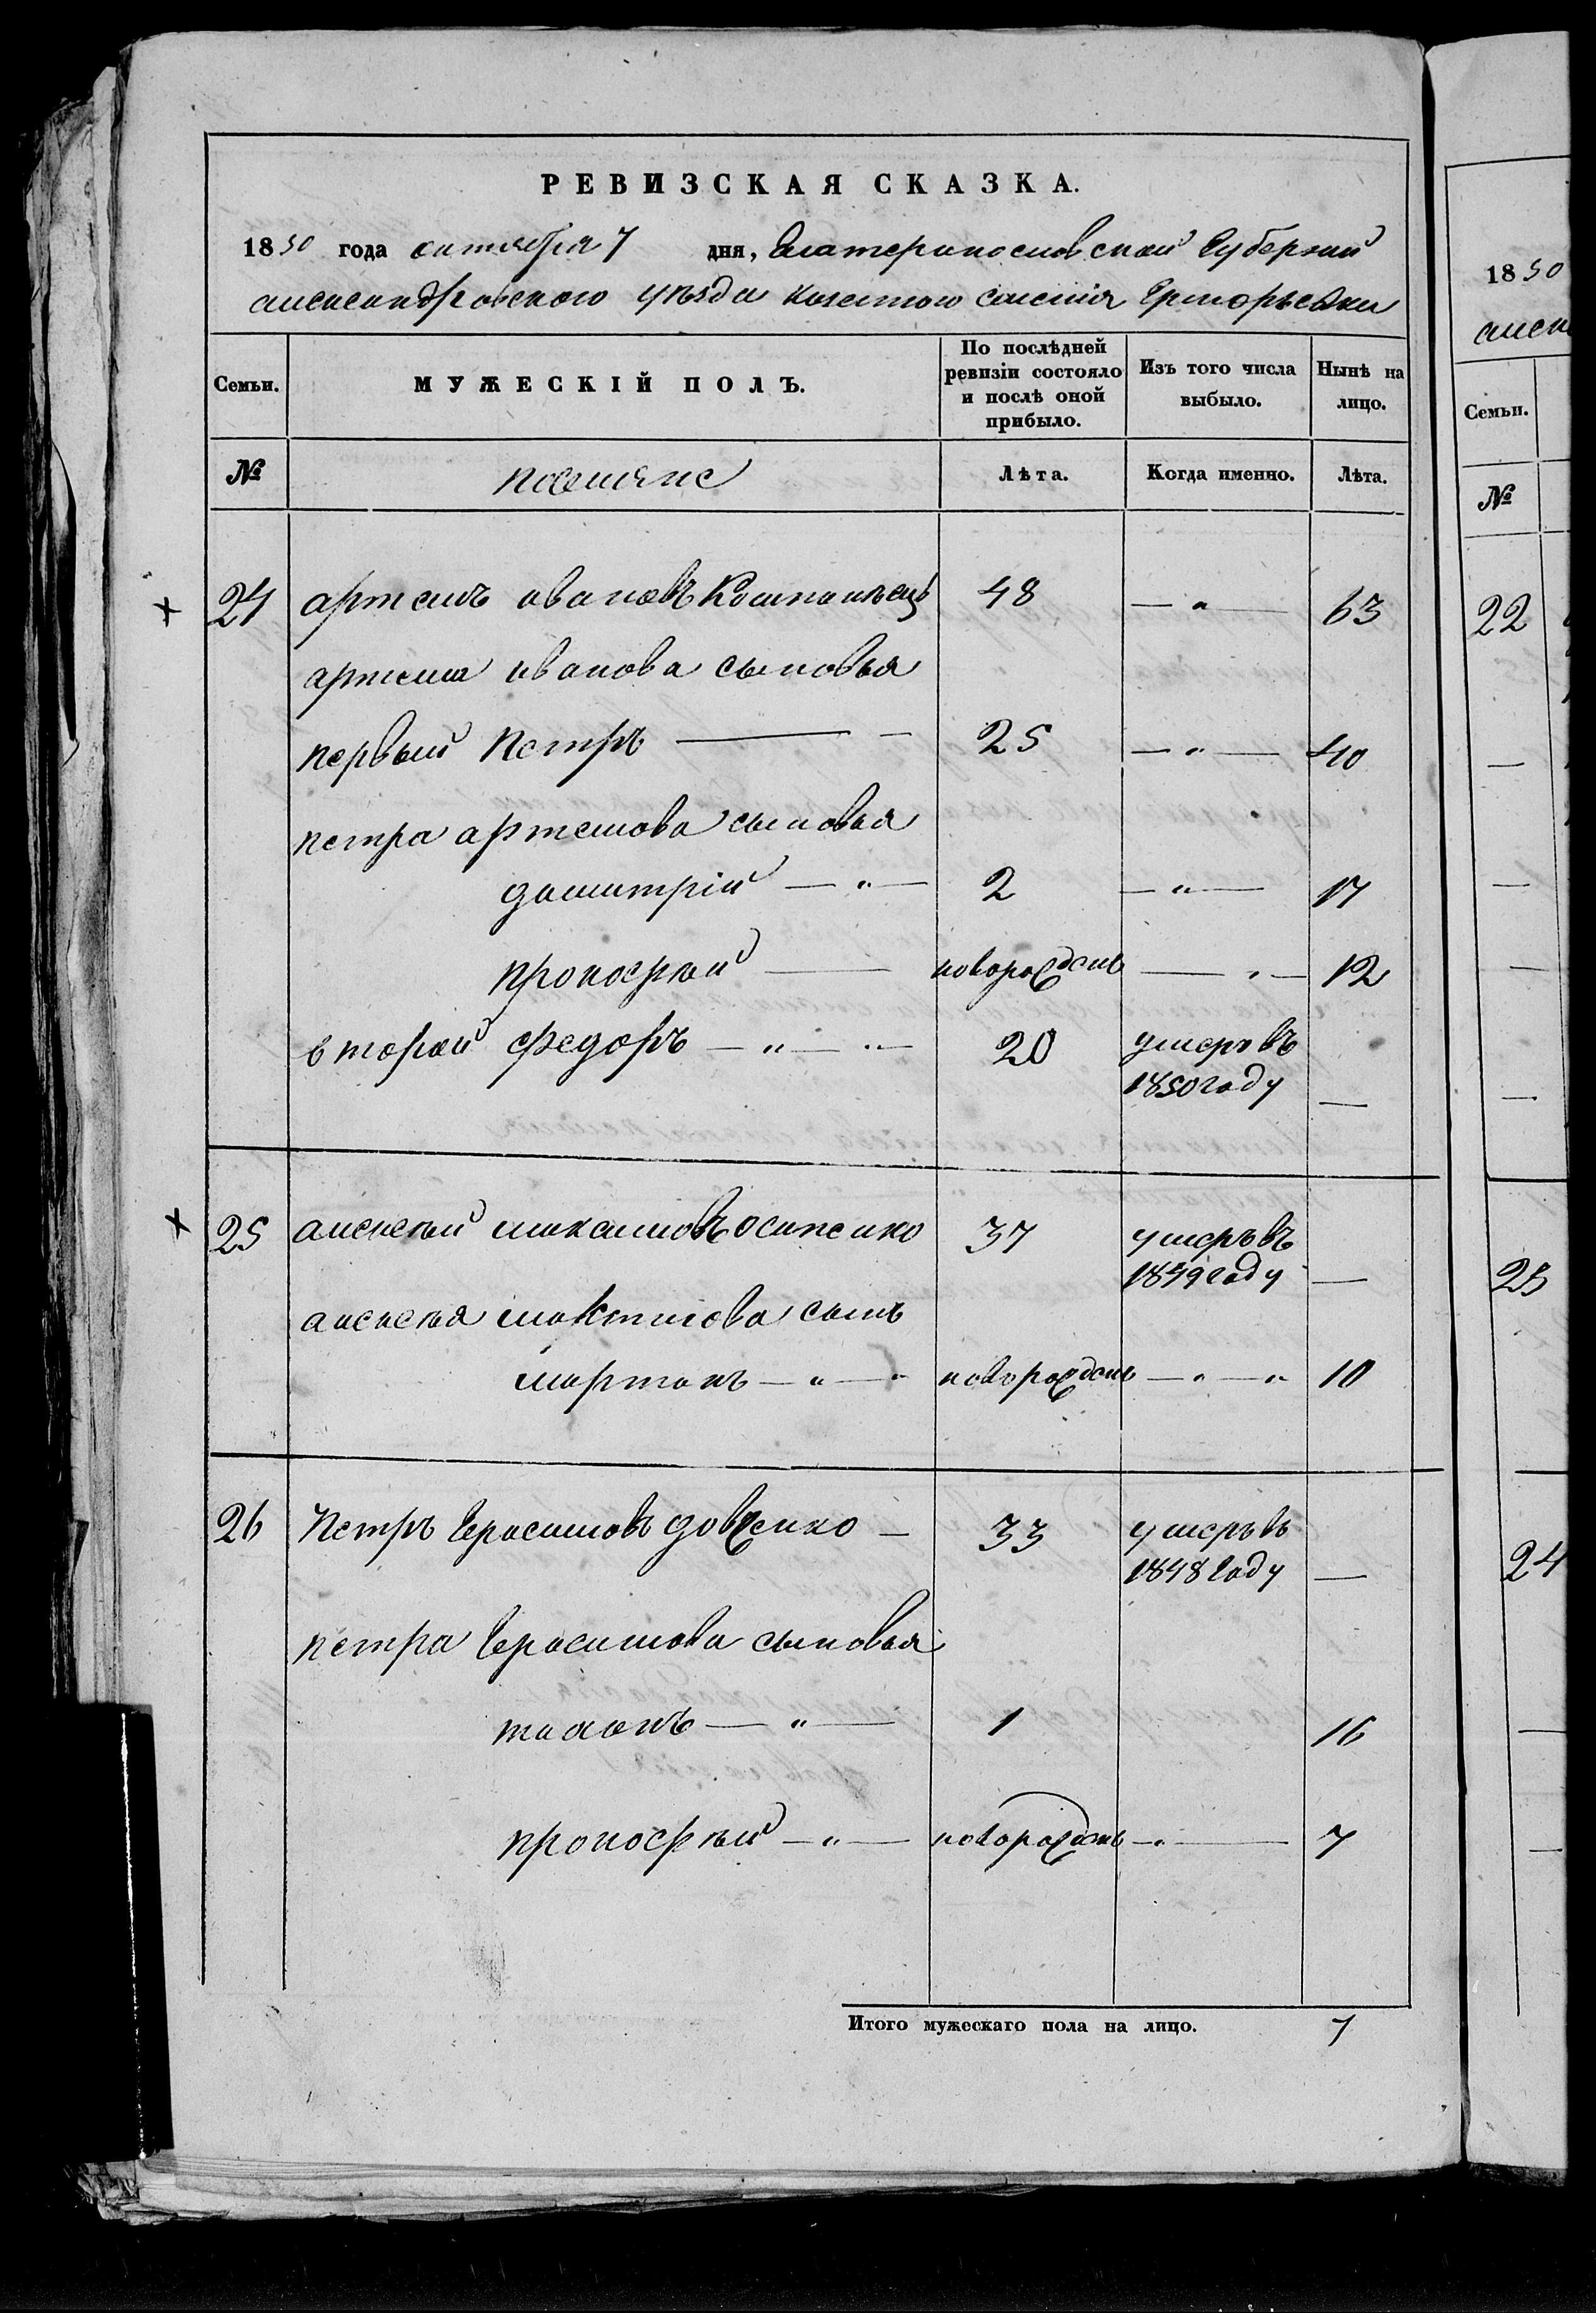 РЕВИЗСКАЯ СКАЗКА.
1850 года октября 7 дня, Екатеринославской Губернии
александровского уезда казенного селения Григорьевки
Семьи. МУЖЕСКІЙ ПОЛЪ. По послѣдней ревизіи состояло и послѣ оной прибыло. Изъ того числа выбыло. Нынѣ на лицо.
№ поселяне Лѣта. Когда именно. Лѣта.
24 артемъ ивановъ 48 — " — 63
артема иванова сыновья
первый петръ — 25 — " — 40
петра артемова сыновья
дмитрій — " — 2 — " — 17
прокофій — новорожденъ — " — 12
вторый федоръ — " — " — 20 умеръ въ
1850 году —
25 алексей максимовъ осипенко 37 умеръ въ
1849 году —
алексея максимова сынъ
мартинъ — " — " новорожденъ — " — " 10
26 Петръ Герасимовъ довженко — 33 умеръ въ
1848 году —
петра Герасимова сыновья
1 16
прокофей — " — новорожденъ — " — 7
Итого мужескаго пола на лицо. 7
1850
алек
Семьи.
№
22
23
24